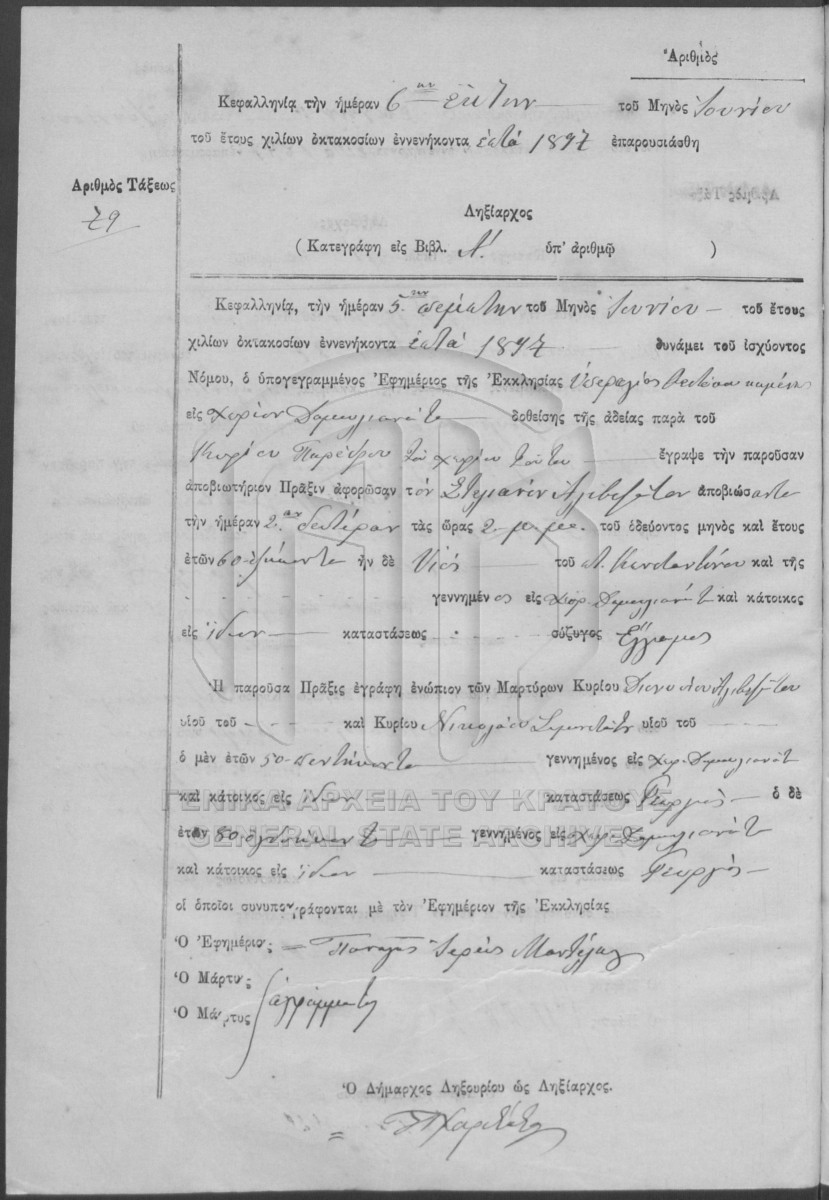 Ἀριθμὸς
Κεφαλληνίᾳ τὴν ἡμέραν 6ην ἕκτην τοῦ Μηνὸς Ἰουνίου
τοῦ ἔτους χιλίων ὀκτακοσίων ἐννενήκοντα ἑπτά 1897 ἐπαρουσιάσθη
Ἀριθμὸς Τάξεως
79
Ληξίαρχος
( Κατεγράφη εἰς Βιβλ. Α'. ὑπ' ἀριθμῷ )
Κεφαλληνίᾳ, τὴν ἡμέραν 5. πέμπτην τοῦ Μηνὸς Ἰουνίου τοῦ ἔτους
χιλίων ὀκτακοσίων ἐννενήκοντα ἑπτά 1897 δυνάμει τοῦ ἰσχύοντος
Νόμου, ὁ ὑπογεγραμμένος Ἐφημέριος τῆς Ἐκκλησίας
εἰς χωρίον Δαμουλιανάτα δοθείσης τῆς ἀδείας παρὰ τοῦ
Κυρίου Παρέδρου τοῦ χωρίου τούτου ἔγραψε τὴν παροῦσαν
ἀποβιωτήριον Πρᾶξιν ἀφορῶσαν τὸν Στυλιανὸν Ἀλιβιζάτον ἀποβιώσαντα
τὴν ἡμέραν 2αν δευτέραν τὰς ὥρας 2 μ.μ. τοῦ ὁδεύοντος μηνὸς καὶ ἔτους
ἐτῶν 60 ἑξήκοντα ἦν δὲ Υἱός τοῦ Κωνσταντίνου καὶ τῆς
γεννημένος εἰς χωρ. Δαμουλιανάτα καὶ κάτοικος
εἰς ἴδιον καταστάσεως σύζυγος ἔγγαμος
Ἡ παροῦσα Πρᾶξις ἐγράφη ἐνώπιον τῶν Μαρτύρων Κυρίου Διονυσίου Ἀλιβιζάτου
υἱοῦ τοῦ καὶ Κυρίου Νικολάου υἱοῦ τοῦ
ὁ μὲν ἐτῶν 50 πεντήκοντα γεννημένος εἰς χωρ. Δαμουλιανάτα
καὶ κάτοικος εἰς ἴδιον καταστάσεως Γεωργὸς ὁ δὲ
ΓΕΝΙΚΑ ΑΡΧΕΙΑ ΤΟΥ ΚΡΑΤΟΥΣ
ἐτῶν γεννημένος εἰς χωρ. Δαμουλιανάτα
GENERAL STATE ARCHIVES
καὶ κάτοικος εἰς ἴδιον καταστάσεως Γεωργὸς
οἱ ὁποῖοι συνυπογράφονται μὲ τὸν Ἐφημέριον τῆς Ἐκκλησίας
Ὁ Ἐφημέριος Παναγῆς Ἱερεὺς
Ὁ Μάρτυς
ἀγράμματοι
Ὁ Μάρτυς
Ὁ Δήμαρχος Ληξουρίου ὡς Ληξίαρχος.